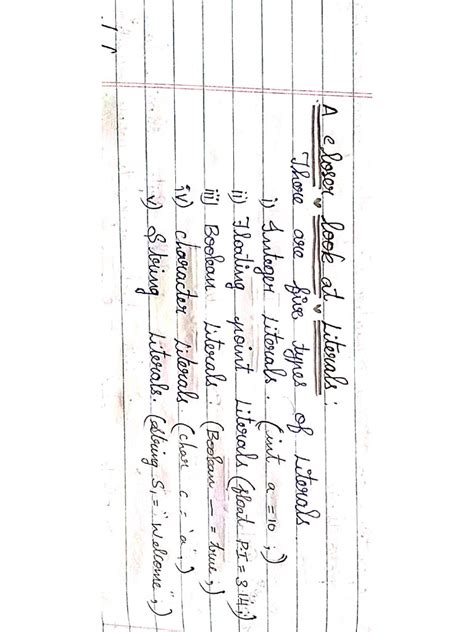 A closer look at Literals:
There are five types of Literals
i) Integer Literals. (int a = 10 ;)
ii) Floating point Literals (float P.I = 3.14;)
iii) Boolean Literals. (Boolean — = true;)
iv) character Literals. (char c = 'a',)
v) String Literals. (string S, = "Welcome",)